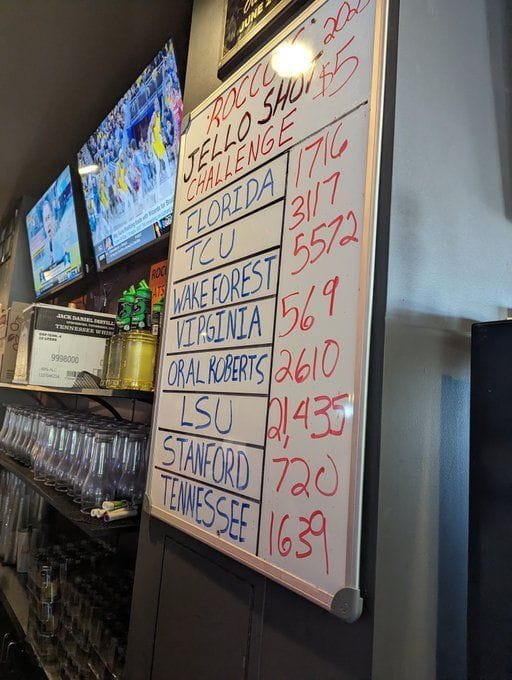 JUNE
ROCCO'S 2023
JELLO SHOT
CHALLENGE $5
FLORIDA 1716
TCU 3117
WAKE FOREST 5572
VIRGINIA 569
ORAL ROBERTS 2610
LSU 21,435
STANFORD 720
TENNESSEE 1639
JACK DANIEL DISTILL
TENNESSEE WHIS
9998000
ROC